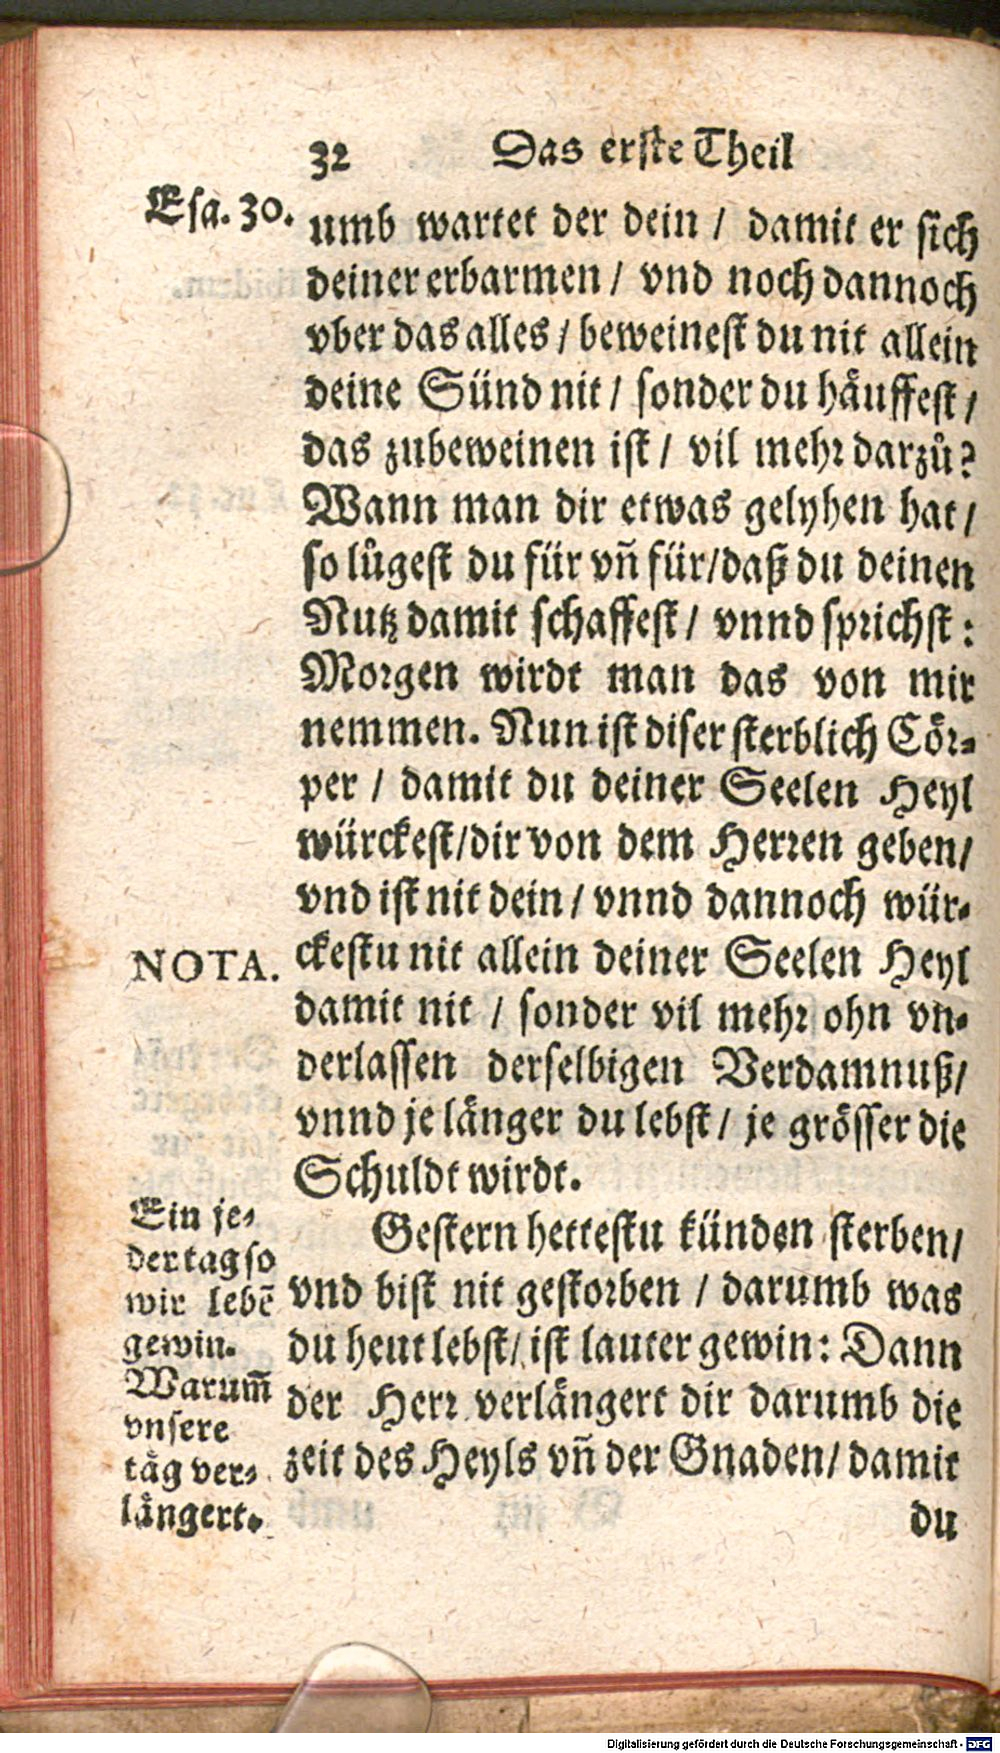 32 Das erste Theil
Esa. 30.
umb wartet der dein / damit er sich
deiner erbarmen / vnd noch dannoch
vber das alles / beweinest du nit allein
deine Sünd nit / sonder du häuffest /
das zubeweinen ist / vil mehr darzů?
Wann man dir etwas gelyhen hat /
so lůgest du für vñ für / daß du deinen
Nutz damit schaffest / vnnd sprichst:
Morgen wirdt man das von mir
nemmen. Nun ist diser sterblich Cör-
per / damit du deiner Seelen Heyl
würckest / dir von dem Herren geben /
vnd ist nit dein / vnnd dannoch wür-
NOTA.
ckestu nit allein deiner Seelen Heyl
damit nit / sonder vil mehr ohn vn-
derlassen derselbigen Verdamnuß /
vnnd je länger du lebst / je grösser die
Schuldt wirdt.
Gestern hettestu künden sterben /
vnd bist nit gestorben / darumb was
du heut lebst / ist lauter gewin: Dann
der Herr verlängert dir darumb die
zeit des Heyls vñ der Gnaden / damit
Ein je-
der tag so
wir lebẽ
gewin.
Warum̃
vnsere
täg ver-
längert.
du
Digitalisierung gefördert durch die Deutsche Forschungsgemeinschaft - DFG